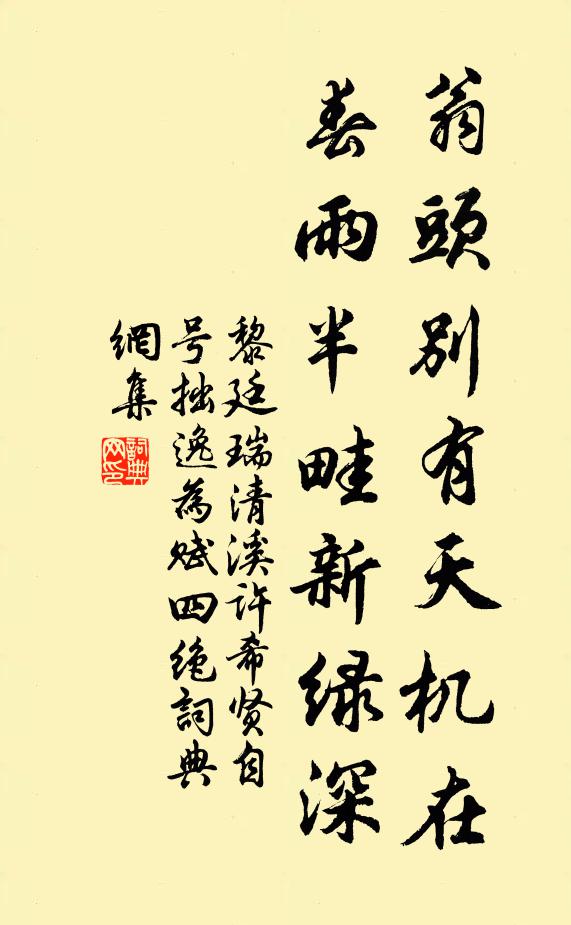 翁頭別有天机在
春雨半畦新绿深
黎廷瑞清溪許希贤自
号拙逸為赋四绝詞典
網集
詞典
网印